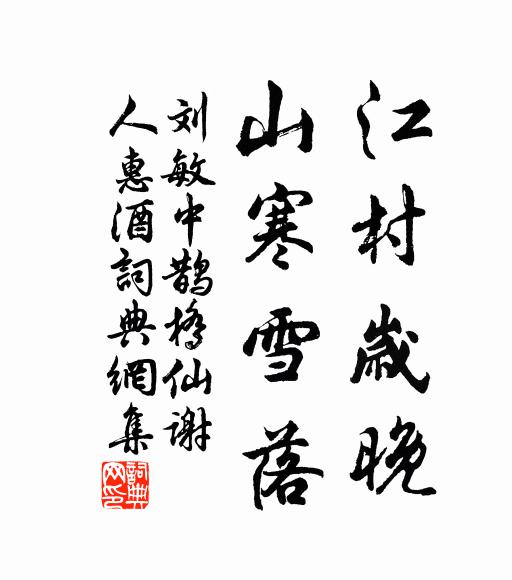 江村歲晚
山寒雪落
刘敏中鹊橋仙谢
人惠酒詞典網集
詞典网印